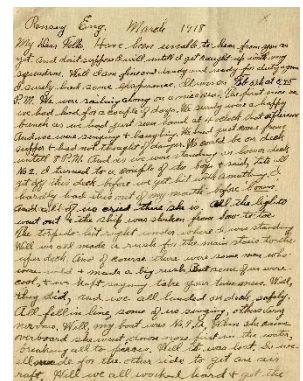 Romsey Eng. March 1918
My Dear Folks, Have been unable to hear from you as
yet and don't suppose I will until I get caught up with my
squadron. Well I am fine and dandy and ready for duty again
I surely had some experience. It was on Feb 5th at
P.M. We were sailing along on a nice sea. The first nice sea
we had had for a couple of days. We surely was a happy
bunch as we had just seen land at 4 oclock that afternoon
And we was singing & laughing. We had just come from
supper & had not thought of danger. We could be on deck
untill 7 P.M. And as we was standing on lower deck
No 2. I turned to a couple of the boys & said, lets all
get off this deck before we get hit with something. I
hardly had this out of my mouth before boom.
And all of us cried there she is. All the lights
went out & the ship was shaken from bow to
The torpedo hit right under where we was standing
Well we all made a rush for the main stairs to the
upper deck. And of course there were some men who
were wild & made a big rush. But some of us were
cool, & we kept saying take your time men. Well,
they did, and we all landed on deck safely.
All fell in line, some of us singing, others being
nervous. Well, my boat was No. Well when she came
overboard she went down nose first in the water,
breaking all to pieces. Well it was lost, so we
for the other side to get an air
raft. Well we all worked hard & got the